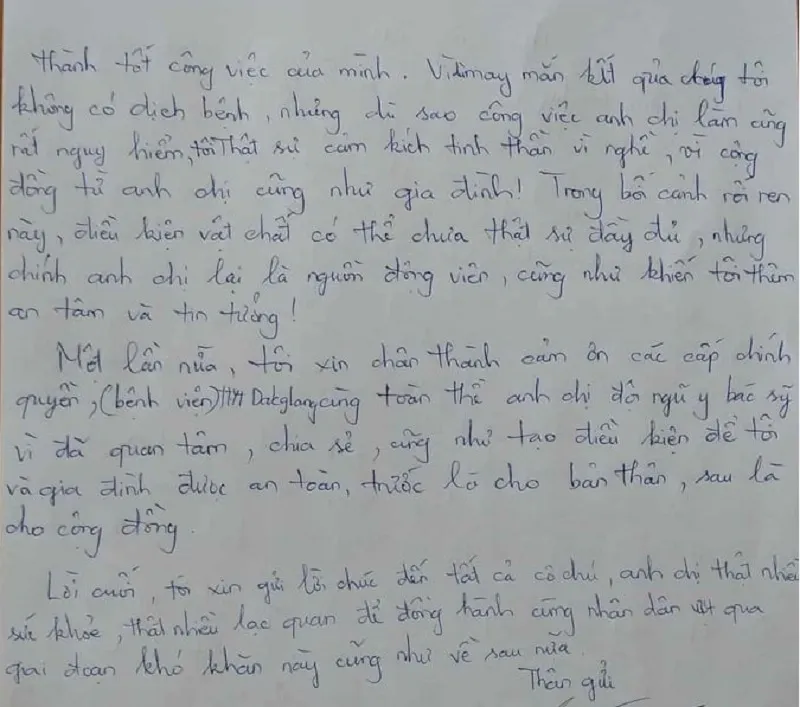 thành tốt công việc của mình. Vì may mắn kết quả chúng tôi
không có dịch bệnh, nhưng dù sao công việc anh chị làm cũng
rất nguy hiểm, tôi thật sự cảm kích tinh thần vì nghề, vì cộng
đồng từ anh chị cũng như gia đình! Trong bối cảnh rối ren
này, điều kiện vật chất có thể chưa thật sự đầy đủ, nhưng
chính anh chị lại là nguồn động viên, cũng như khiến tôi thêm
an tâm và tin tưởng!
Một lần nữa, tôi xin chân thành cảm ơn các cấp chính
quyền, (bệnh viện) Dakglang cùng toàn thể anh chị đội ngũ y bác sỹ
vì đã quan tâm, chia sẻ, cũng như tạo điều kiện để tôi
và gia đình được an toàn, trước là cho bản thân, sau là
cho cộng đồng.
Lời cuối, tôi xin gửi lời chúc đến tất cả cô chú, anh chị thật nhiều
sức khỏe, thật nhiều lạc quan để đồng hành cùng nhân dân vượt qua
giai đoạn khó khăn này cũng như về sau nữa.
Thân gửi